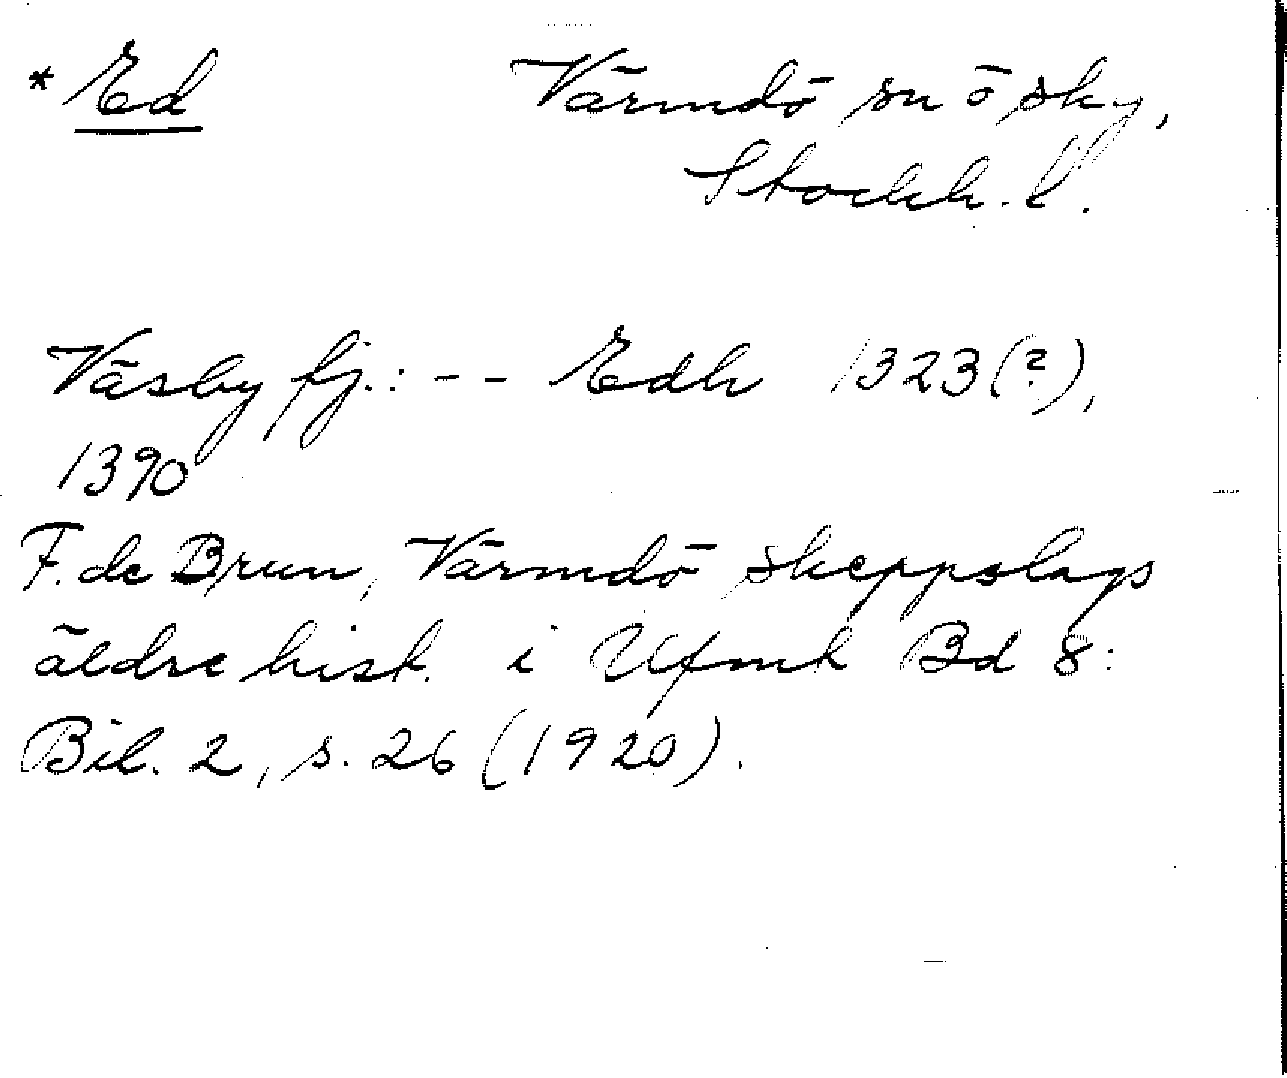 * Ed Värmdö sn ö sky,
Stockh. l.
Väsby fj.: -- Edh 1323(?),
1390
F. de Brun, Värmdö skeppslags
äldre hist. i Ufmh Bd 8:
Bil. 2, s. 26 (1920).